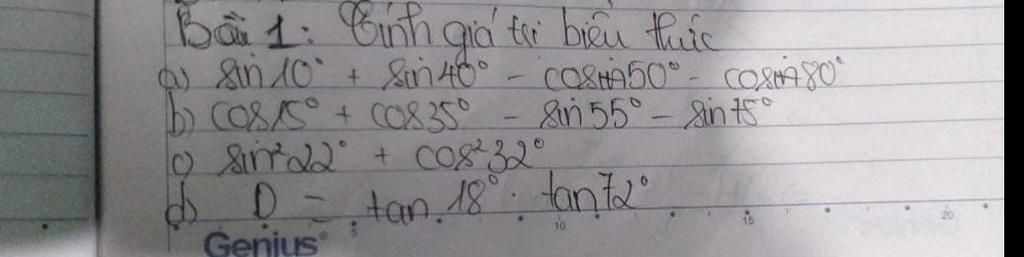 Bài 1: Tính giá trị biểu thức
a) sin 10° + sin 40° - cos 50° - cos 80°
b) cos 15° + cos 35° - sin 55° - sin 75°
c) sin² 22° + cos² 32°
d) D = tan 18° . tan 72°
5 10 15 20
Genius